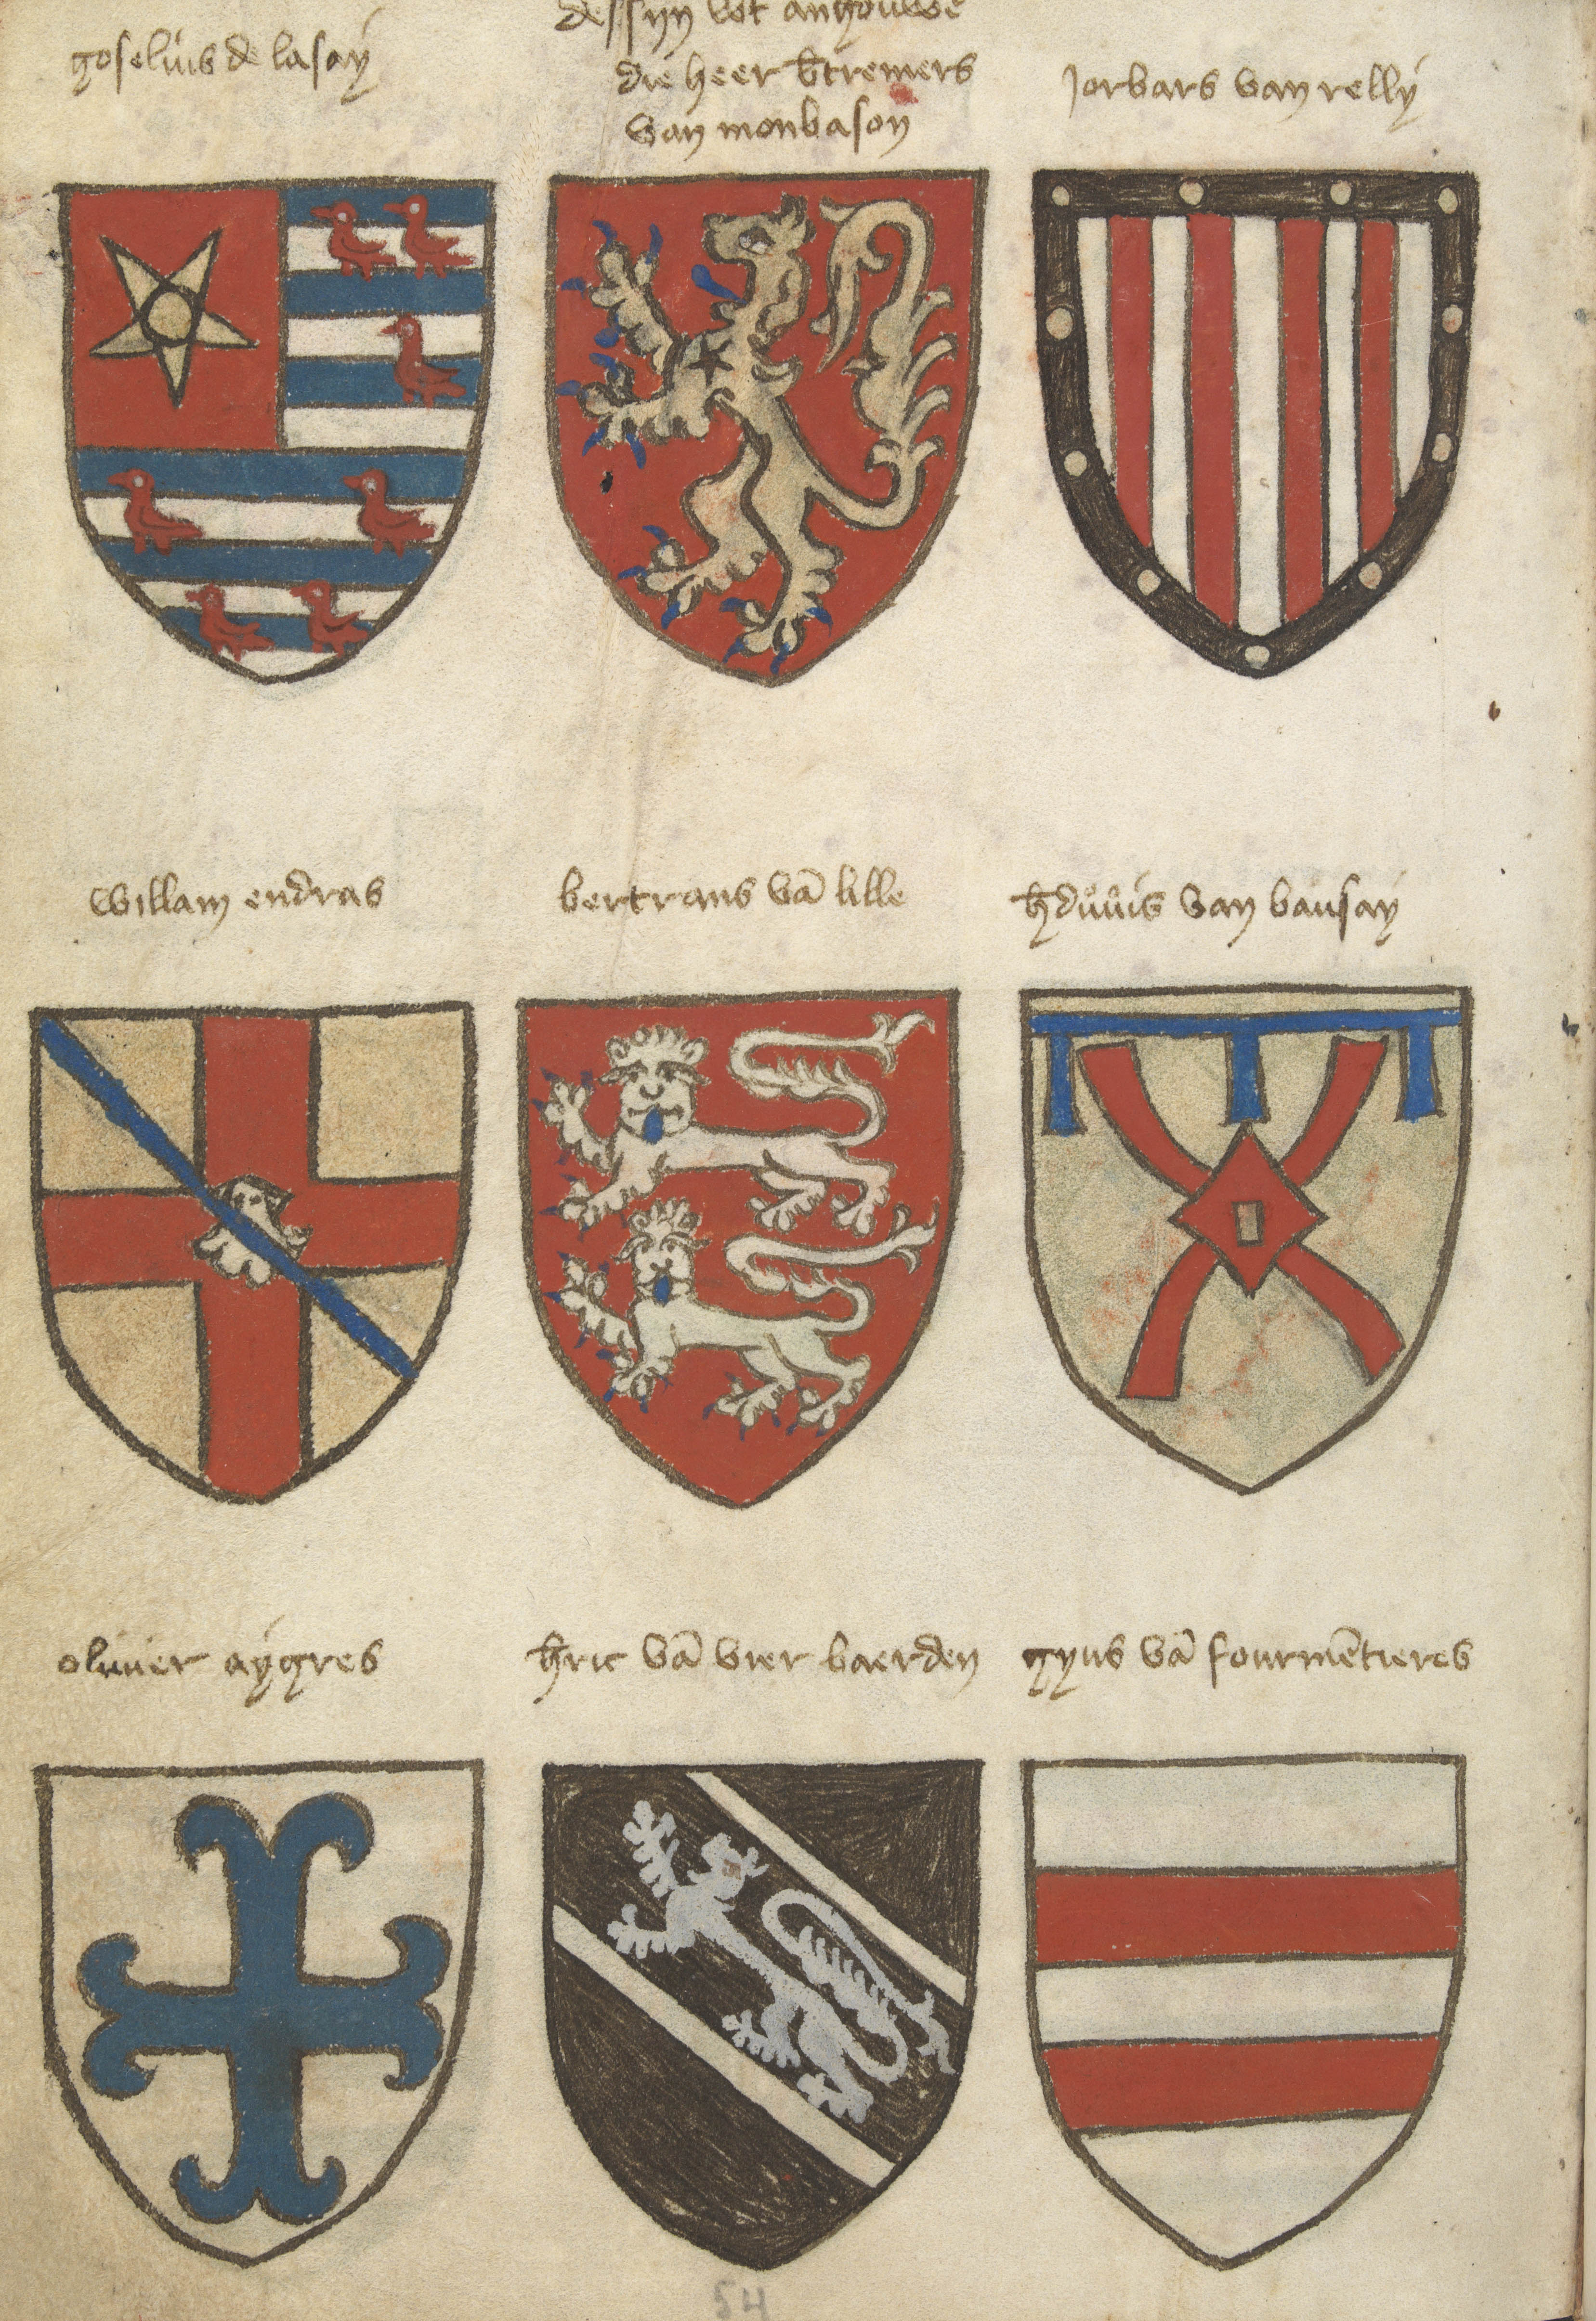 goseluis de lasay
dessyn vot anghouwe
die heer b̄tremers
van monbason
Jorbars van relly
willam endras
bertrans vā lille
h̄duwis van bausay
oliuier aygres
h̄ric vā vier baerden
gyus vā fourmētieres
54